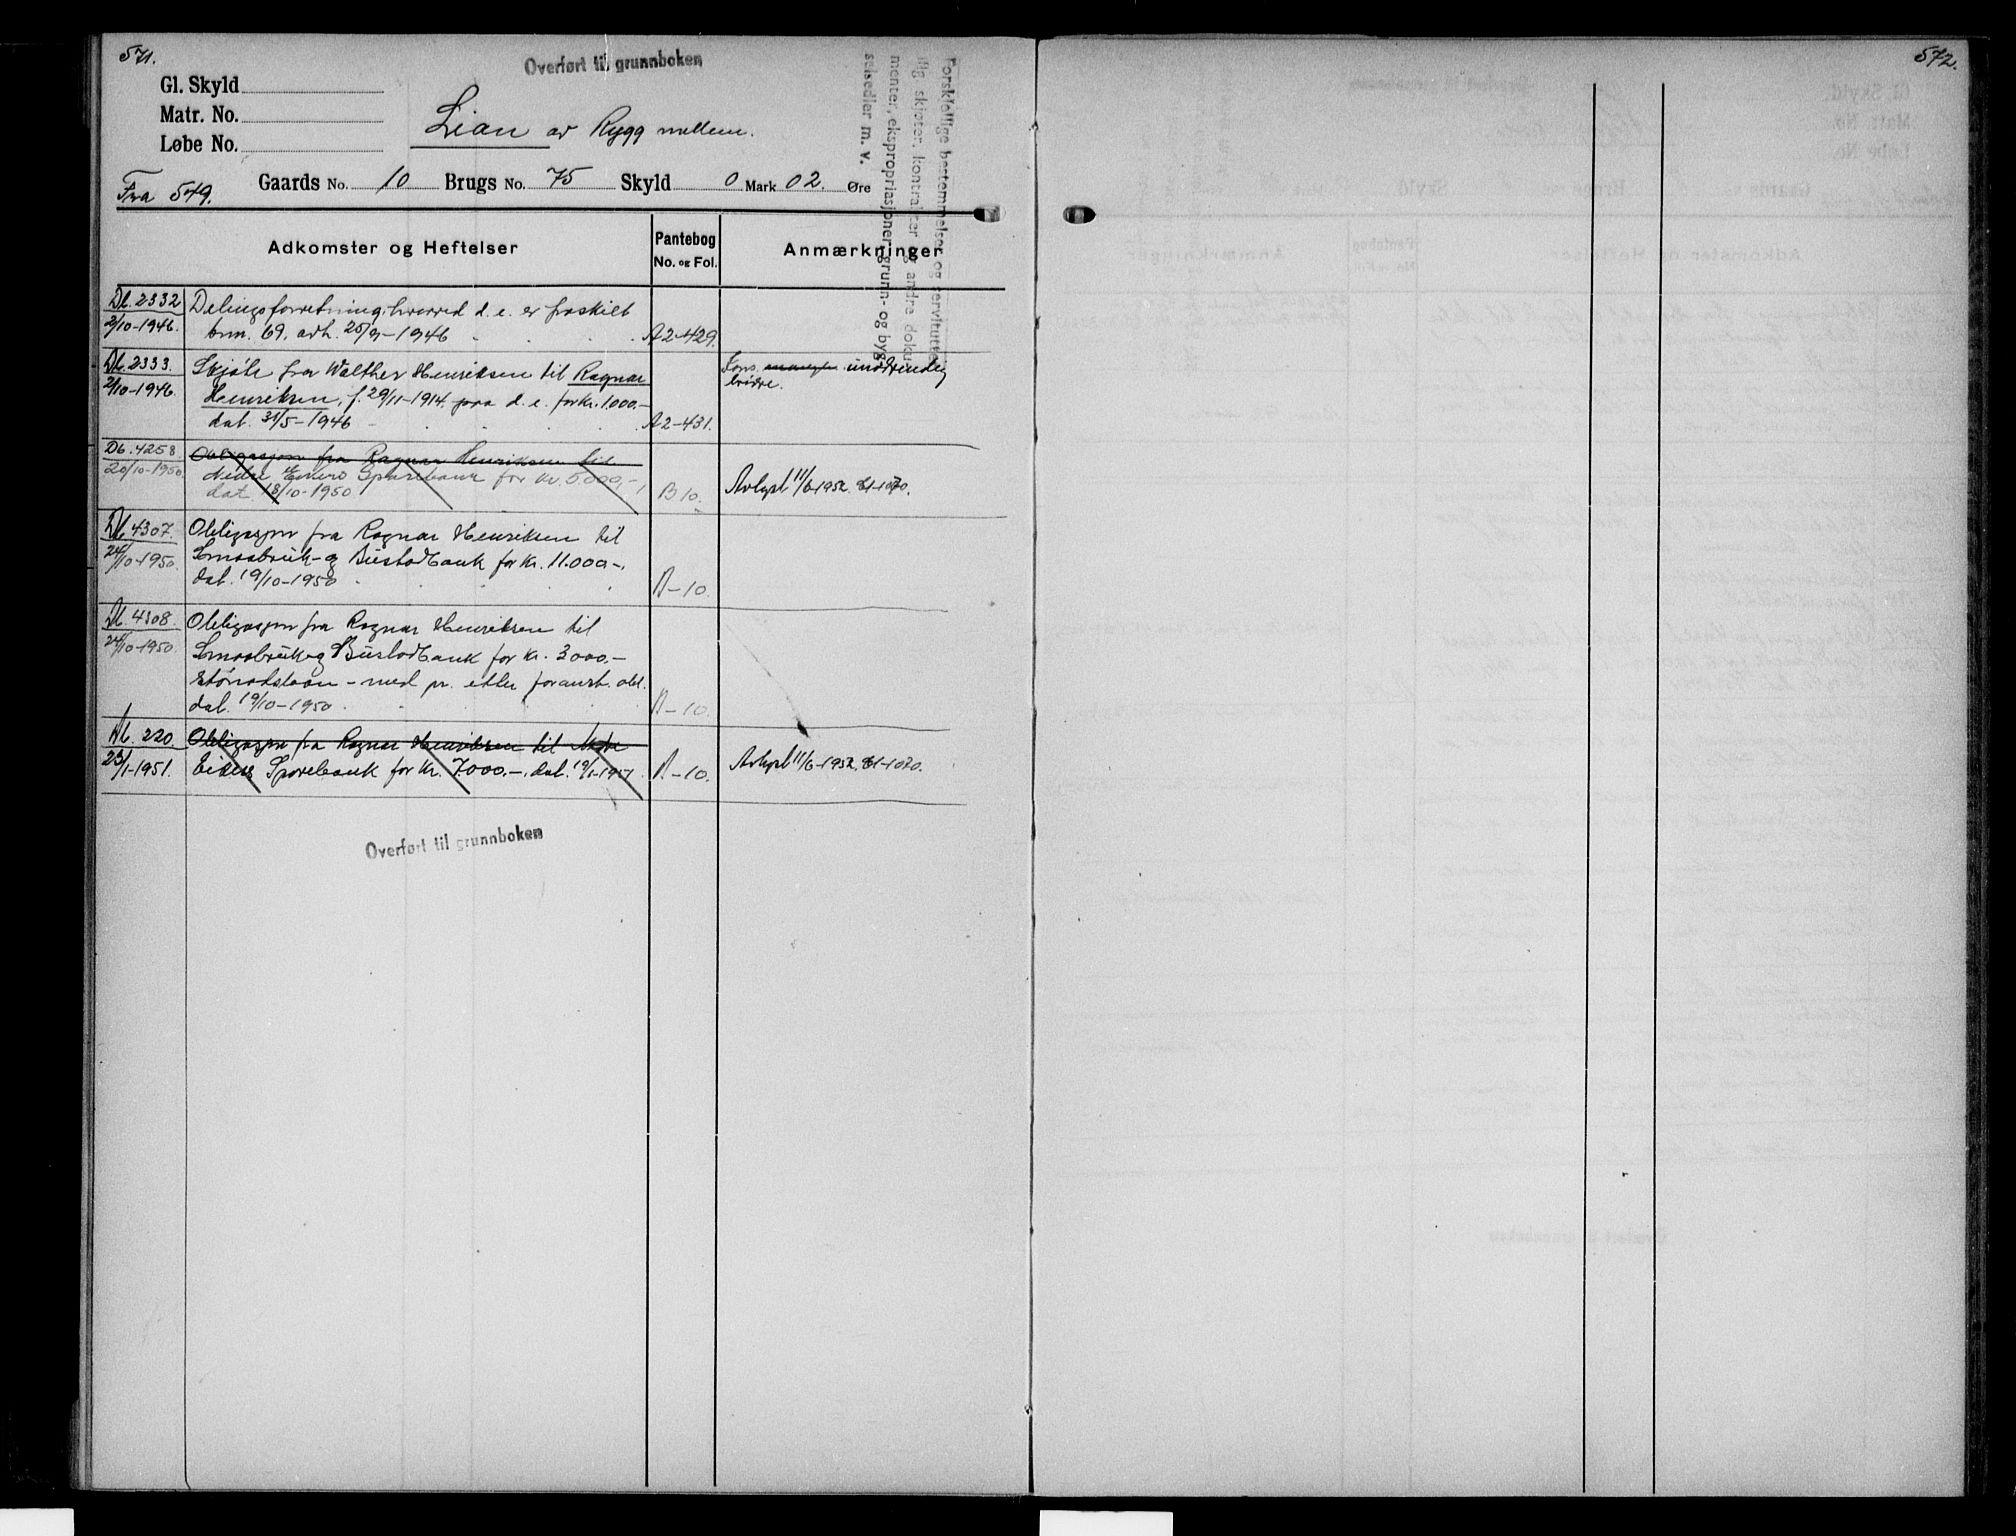 571.
Overført til grunnboken
Gl. Skyld
Matr. No.
Løbe No.
Lian av Rygg mellem.
Fra 549.
Gaards No. 10 Brugs No. 75 Skyld 0 Mark 02. Øre
Forskjellige bestemmelser og servitutter
iflg. skjøter, kontrakter og andre doku-
menter, ekspropriasjoner, grunn- og byg-
selsedler m. v.
Adkomster og Heftelser
Pantebog
No. og Fol.
Anmærkninger
Db. 2332
2/10-1946.
Delingsforretning, hvorved d. e. er fraskilt
bnr. 69, avh. 25/9-1946
A2-429.
Db. 2333.
2/10-1946.
Skjøte fra Walther Henriksen til Ragnar
Henriksen, f. 29/11-1914, paa d. e. for kr. 1000.-
dat. 31/5-1946
A2-431.
uadskilndelig
brødre.
Db. 4258.
20/10-1950.
Obligasjon fra Ragnar Henriksen til
Nedre Eikers Sparebank for kr. 5.000,-,
dat. 18/10-1950
B 10.
Avlyst 11/6-1952.
Db. 4307.
24/10-1950.
Obligasjon fra Ragnar Henriksen til
Smaabruk- og Bustadbank for kr. 11.000.-.
dat. 19/10-1950
B-10.
Db. 4308.
24/10-1950.
Obligasjon fra Ragnar Henriksen til
Smaabruk- og Bustadbank for kr. 3000.-
stønadslaan - med pr. etter foranst. obl.
dat. 19/10-1950
B-10.
Db. 220.
23/1-1951.
Obligasjon fra Ragnar Henriksen til Nedre
Eikers Sparebank for kr. 7.000.-, dat. 19/1-1951
B-10.
Avlyst 11/6-1952.
Overført til grunnboken
572.